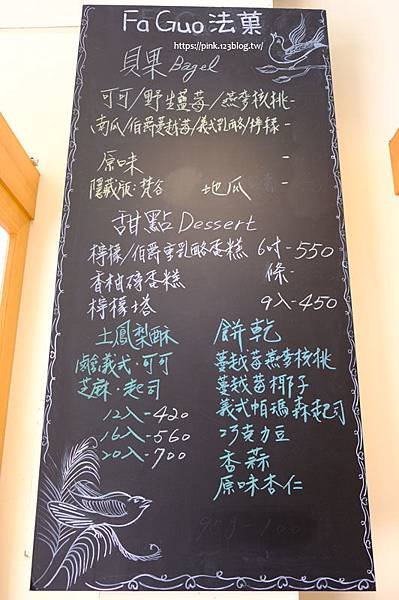 Fa Guo 法菓
https://pink.123blog.tw/
貝果 Bagel
可可/野生藍莓/燕麥核桃-
南瓜/伯爵蔓越莓/義式乳酪/檸檬-
原味 -
隱藏版: 地瓜 -
甜點 Dessert
檸檬/伯爵重乳酪蛋糕 6吋-550
香柚磅蛋糕 條-
檸檬塔 9入-450
土鳳梨酥
鹹義式·可可
芝麻·起司
12入-420
16入-560
20入-700
餅乾
蔓越莓燕麥核桃
蔓越莓椰子
義式帕瑪森起司
巧克力豆
香蒜
原味杏仁